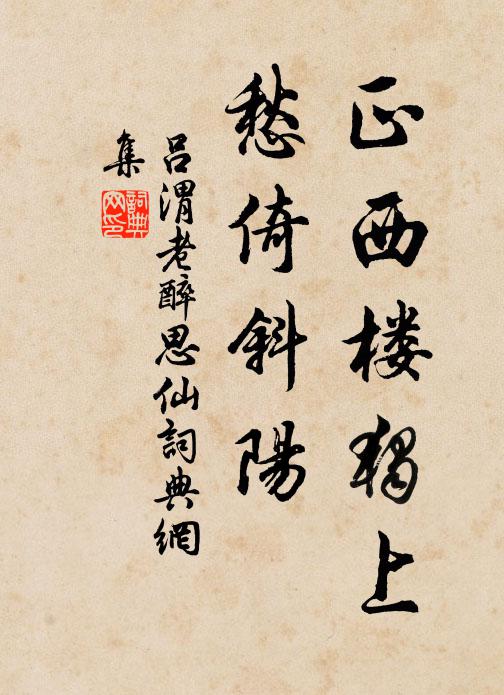 正西楼独上
愁倚斜陽
吕渭老醉思仙詞典網
集
詞典网印